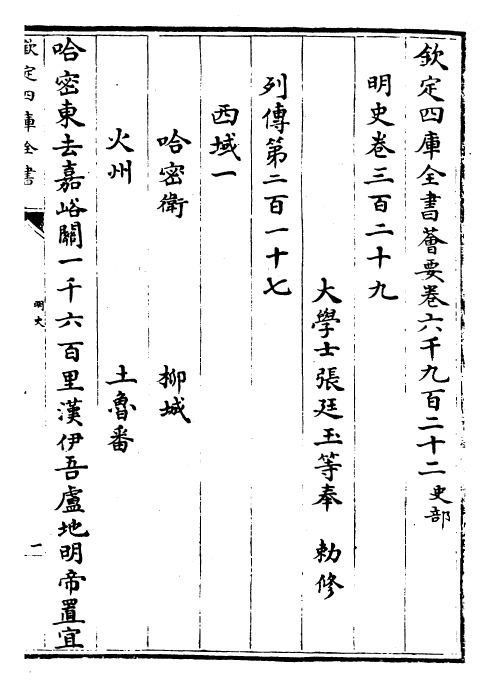 欽定四庫全書薈要卷六千九百二十二史部
明史卷三百二十九
大學士張廷玉等奉 勅修
列傳第二百一十七
西域一
哈密衛 柳城
火州 土魯番
哈密東去嘉峪關一千六百里漢伊吾盧地明帝置宜
欽定四庫全書
明史
一